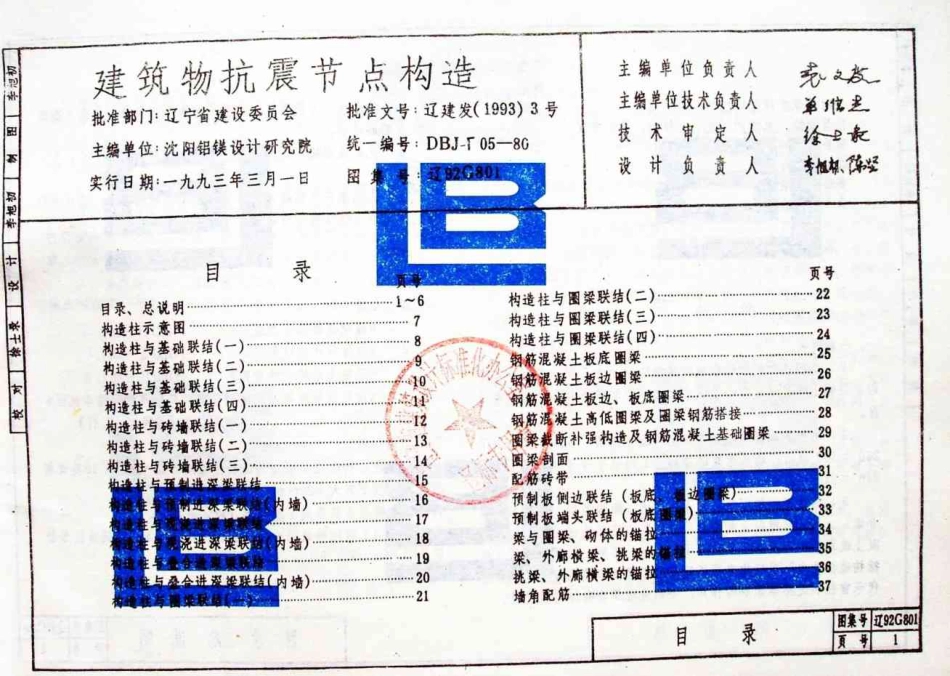 建筑物抗震节点构造
批准部门：辽宁省建设委员会 批准文号：辽建发(1993)3号
主编单位：沈阳铝镁设计研究院 统一编号：DBJ-T 05—86
实行日期：一九九三年三月一日 图集号：辽92G801
主编单位负责人
主编单位技术负责人
技术审定人
设计负责人
校对 徐士录 设计 李旭初 制图 李旭初
目录
页号
目录、总说明 1～6
构造柱示意图 7
构造柱与基础联结(一) 8
构造柱与基础联结(二) 9
构造柱与基础联结(三) 10
构造柱与基础联结(四) 11
构造柱与砖墙联结(一) 12
构造柱与砖墙联结(二) 13
构造柱与砖墙联结(三) 14
构造柱与预制进深梁联结 15
构造柱与预制进深梁联结(内墙) 16
构造柱与现浇进深梁联结 17
构造柱与现浇进深梁联结(内墙) 18
构造柱与叠合进深梁联结 19
构造柱与叠合进深梁联结(内墙) 20
构造柱与圈梁联结(一) 21
页号
构造柱与圈梁联结(二) 22
构造柱与圈梁联结(三) 23
构造柱与圈梁联结(四) 24
钢筋混凝土板底圈梁 25
钢筋混凝土板边圈梁 26
钢筋混凝土板边、板底圈梁 27
钢筋混凝土高低圈梁及圈梁钢筋搭接 28
圈梁截断补强构造及钢筋混凝土基础圈梁 29
圈梁剖面 30
配筋砖带 31
预制板侧边联结（板底、板边圈梁） 32
预制板端头联结（板底圈梁） 33
梁与圈梁、砌体的锚拉 34
梁、外廊横梁、挑梁的锚拉 35
挑梁、外廊横梁的锚拉 36
墙角配筋 37
目录
图集号 辽92G801
页号 1